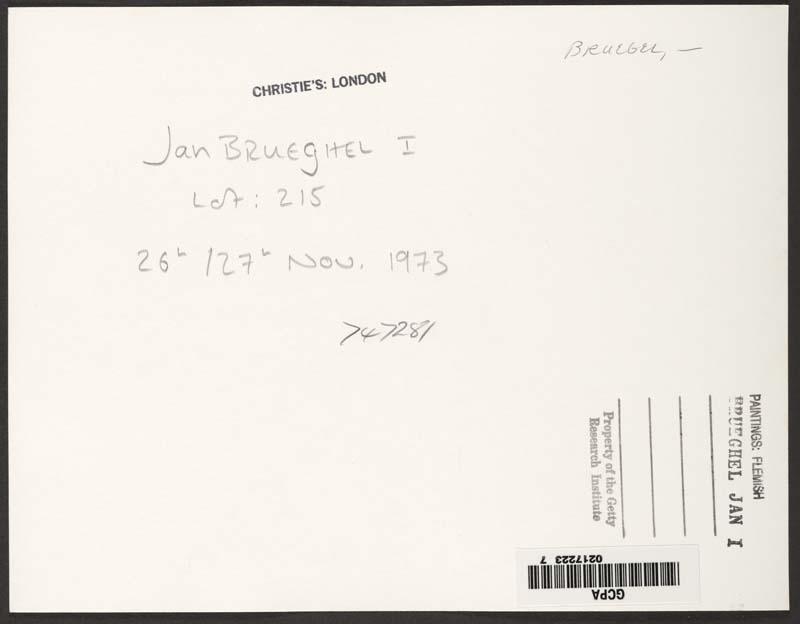 BRUEGEL, —
CHRISTIE'S: LONDON
Jan BRUEGHEL I
Lot: 215
26ᵗʰ /27ᵗʰ NOV. 1973
747281
PAINTINGS: FLEMISH
BRUEGHEL JAN I
Property of the Getty
Research Institute
GCPA
0217223 7